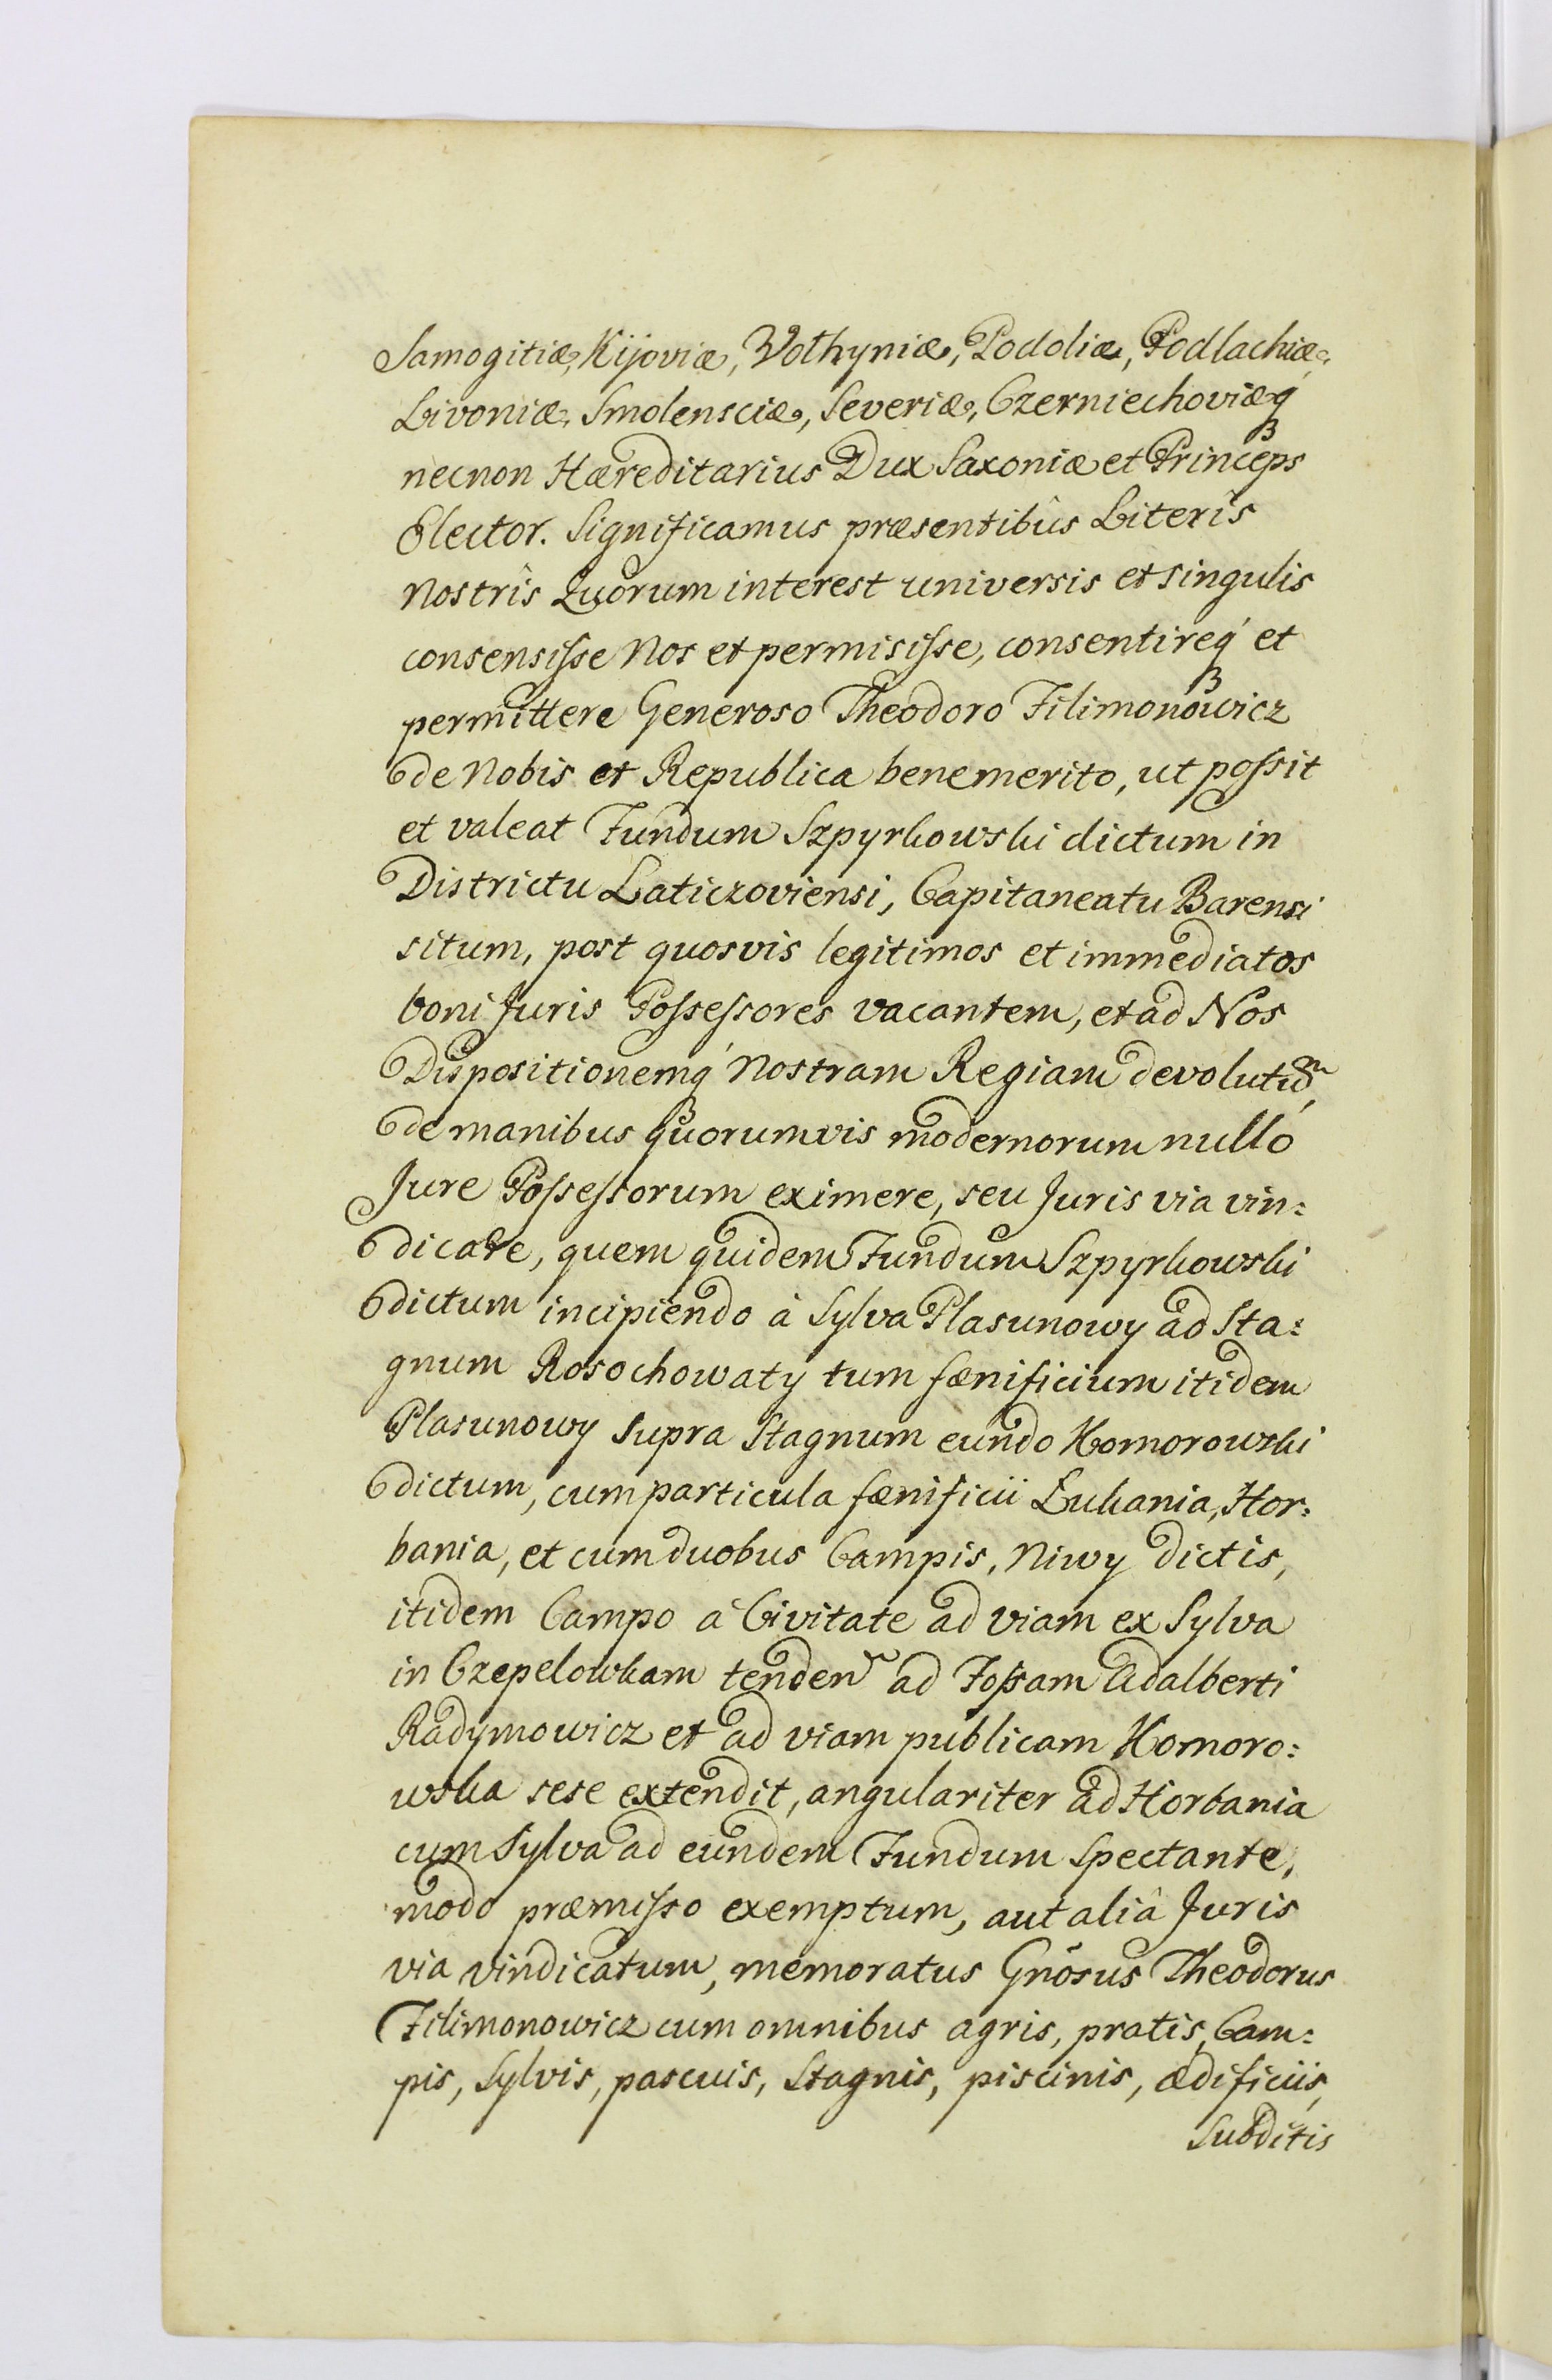 Samogitiæ, Kijoviæ, Volhyniæ, Podoliæ, Podlachiæ,
Livoniæ, Smolensciæ, Severiæ, Czerniechoviæq́
necnon Hæreditarius Dux Saxoniæ et Princeps
Elector. Significamus præsentibûs Literîs
Nostrîs Quorum interest universis et singulis
consensiſse Nos et permisiſse, consentireq́ et
permittere Generoso Theodoro Filimonowicz
de Nobis et Republica benemerito, ut poſsit
et valeat Fundum Szpyrkowski dictum in
Districtu Laticzoviensi, Capitaneatu Barensi
situm, post quosvis legitimos et immediatos
boni Juris Poſseſsores vacantem, et ad Nos
Dispositionemq́ Nostram Regiam devolutũᵐ,
de manibus quorumvis modernorum nullo
Jure Poſseſsorum eximere, seu Juris via vin:
dicare, quem quidem Fundum Szpyrkowski
dictum incipiendo à Sylva Plasunowy ad Sta:
gnum Rosochowaty tum fænificium itidem
Plasunowy supra Stagnum eundo Komorowski
dictum, cum particula fænificii Lukania, Hor:
bania, et cum duobus Campis, Niwy dictis,
itidem Campo à Civitate ad viam ex Sylva
in Czepelowkam tenden~ ad Foſsam Adalberti
Radymowicz et ad viam publicam Komoro:
wska sese extendit, angulariter ad Horbania
cum Sylva ad eundem Fundum Spectante,
modo præmiſso exemptum, aut aliâ Juris
via vindicatum, memoratus Gnõsus Theodorus
Filimonowicz cum omnibus agris, pratis, Cam:
pis, Sylvis, pascuis, Stagnis, piscinis, ædificiis,
Subditis